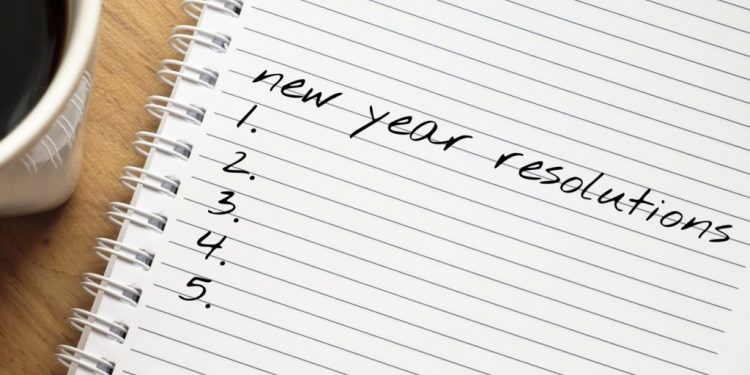 new year resolutions
1.
2.
3.
4.
5.